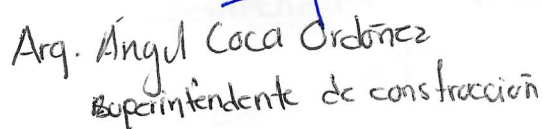 Arq. Ángel Coca Ordóñez
Superintendente de construcción